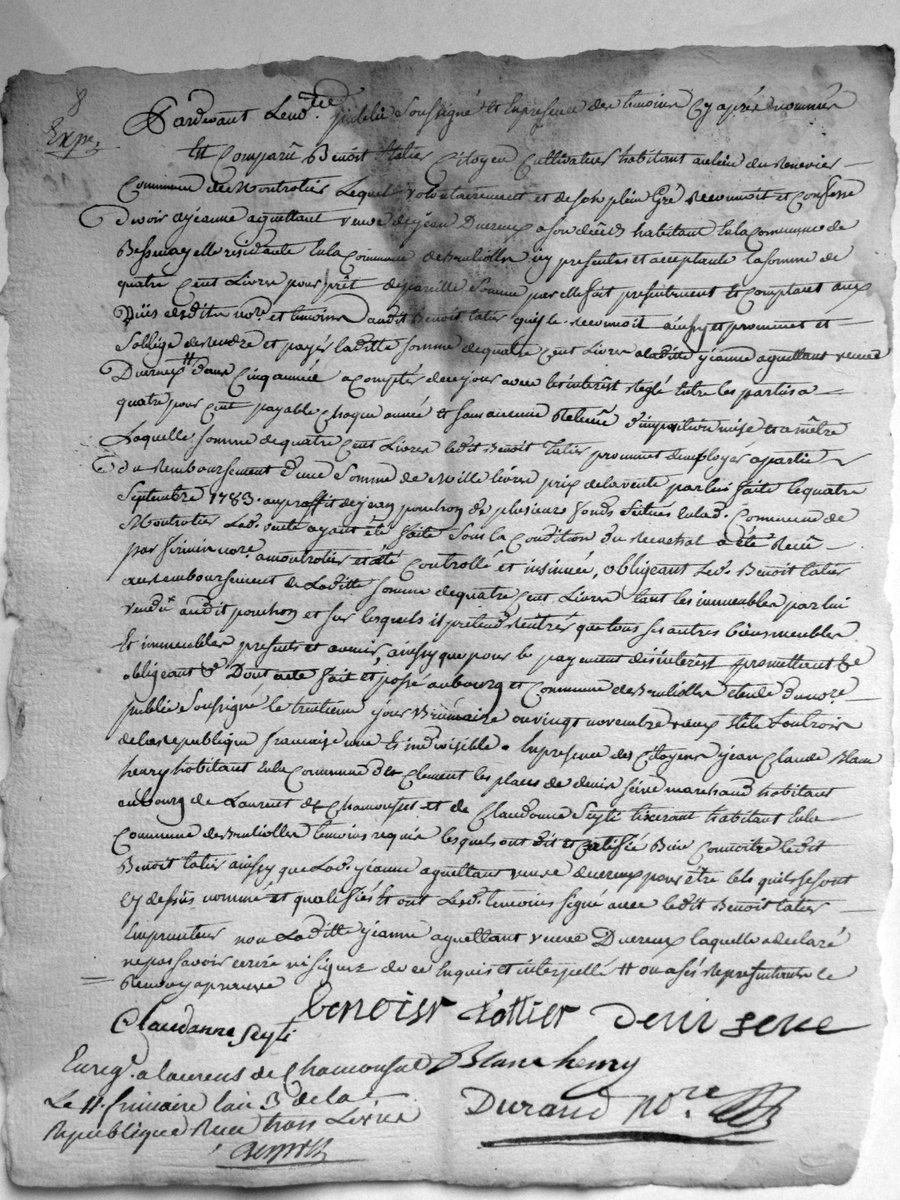 8
Expe.
Pardevant Le no.re public Soussigné et En presence des temoins Cy après nommés
Est Comparû Benoit tatier Citoyen Cultivateur habitant au lieu du
Commune de Montrotier Lequel volontairement et de son plein Gré Reconnoit et Confesse
devoir a jeanne aguettant veuve de jean Duereux a son décès habitant En la Commune de
Bessenay elle residante En la Commune de Brullolles icy presente et acceptante la somme de
quatre Cent Livres pour prêt de pareille Somme par elle fait presentement et Comptant aux
vûes desdits no.re et temoins audit Benoit tatier qui le reconnoit ainsy et promet et
S'oblige de rendre et payer laditte somme de quatre Cent Livres a laditte jeanne aguettant veuve
Duereux dans Cinq année a Compter de ce jour avec les interêt Reglé Entre les parties a
quatre pour Cent payable Chaque année Et sans aucune Retenue d'imposition mise et a mêtre
Laquelle Somme de quatre Cent Livres ledit Benoit tatier promet d'employer a partie
du Remboursement d'une Somme de Mille livres prix de la vente par lui faite le quatre
Septembre 1783. au proffit de jean ponchon de plusieurs fonds Situés En lad. Commune de
Montrotier Lad. vente ayant été faite Sous la Condition du Rémeré a été Reçu
par no.re a Montrotier et été Controllé et insinuée, obligeant Led. Benoit tatier
au remboursement de Laditte Somme de quatre Cent Livres tant les immeubles par lui
vendu audit ponchon et sur lesquels il prétend rentrer que tous ses autres biens meubles
Et immeubles presents et avenir ainsy que pour le payement des interêst promettant &
obligeant &. Dont acte fait et passé au bourg et Commune de Brullolles etude du no.re
public Soussigné le trentieme jour Brumaire ou vingt novembre vieux stile L'an trois
de la Republique française une Et indivisible. En presence des Citoyens jean Claude Blanc
henry habitant En la Commune de Clement les places de denis séve marchand habitant
au bourg de Laurent de Chamousset et de Claudanne Seytí tixerant habitant En la
Commune de Brullolles temoins requis lesquels ont dit et Certifié Bien Connoître ledit
Benoit tatier ainssy que Lad. jeanne aguettant veuve duereux pour être tels quils se sont
Cy dessus nommé et qualifiés Et ont Lesd. temoins signé avec ledit Benoit tatier
Emprunteur non Laditte jeanne aguettant veuve Duereux laquelle a declaré
ne pas savoir ecrire ni signer de ce Enquis et interpellé
Renvoy aprouvé
benoist tattier Deni seve
Claudanne Seyti
Blanc henry
Enreg. a laurens de Chamousset
Le 11 frimaire l'an 3 de la
Republique Recu trois Livres
Durand No.re